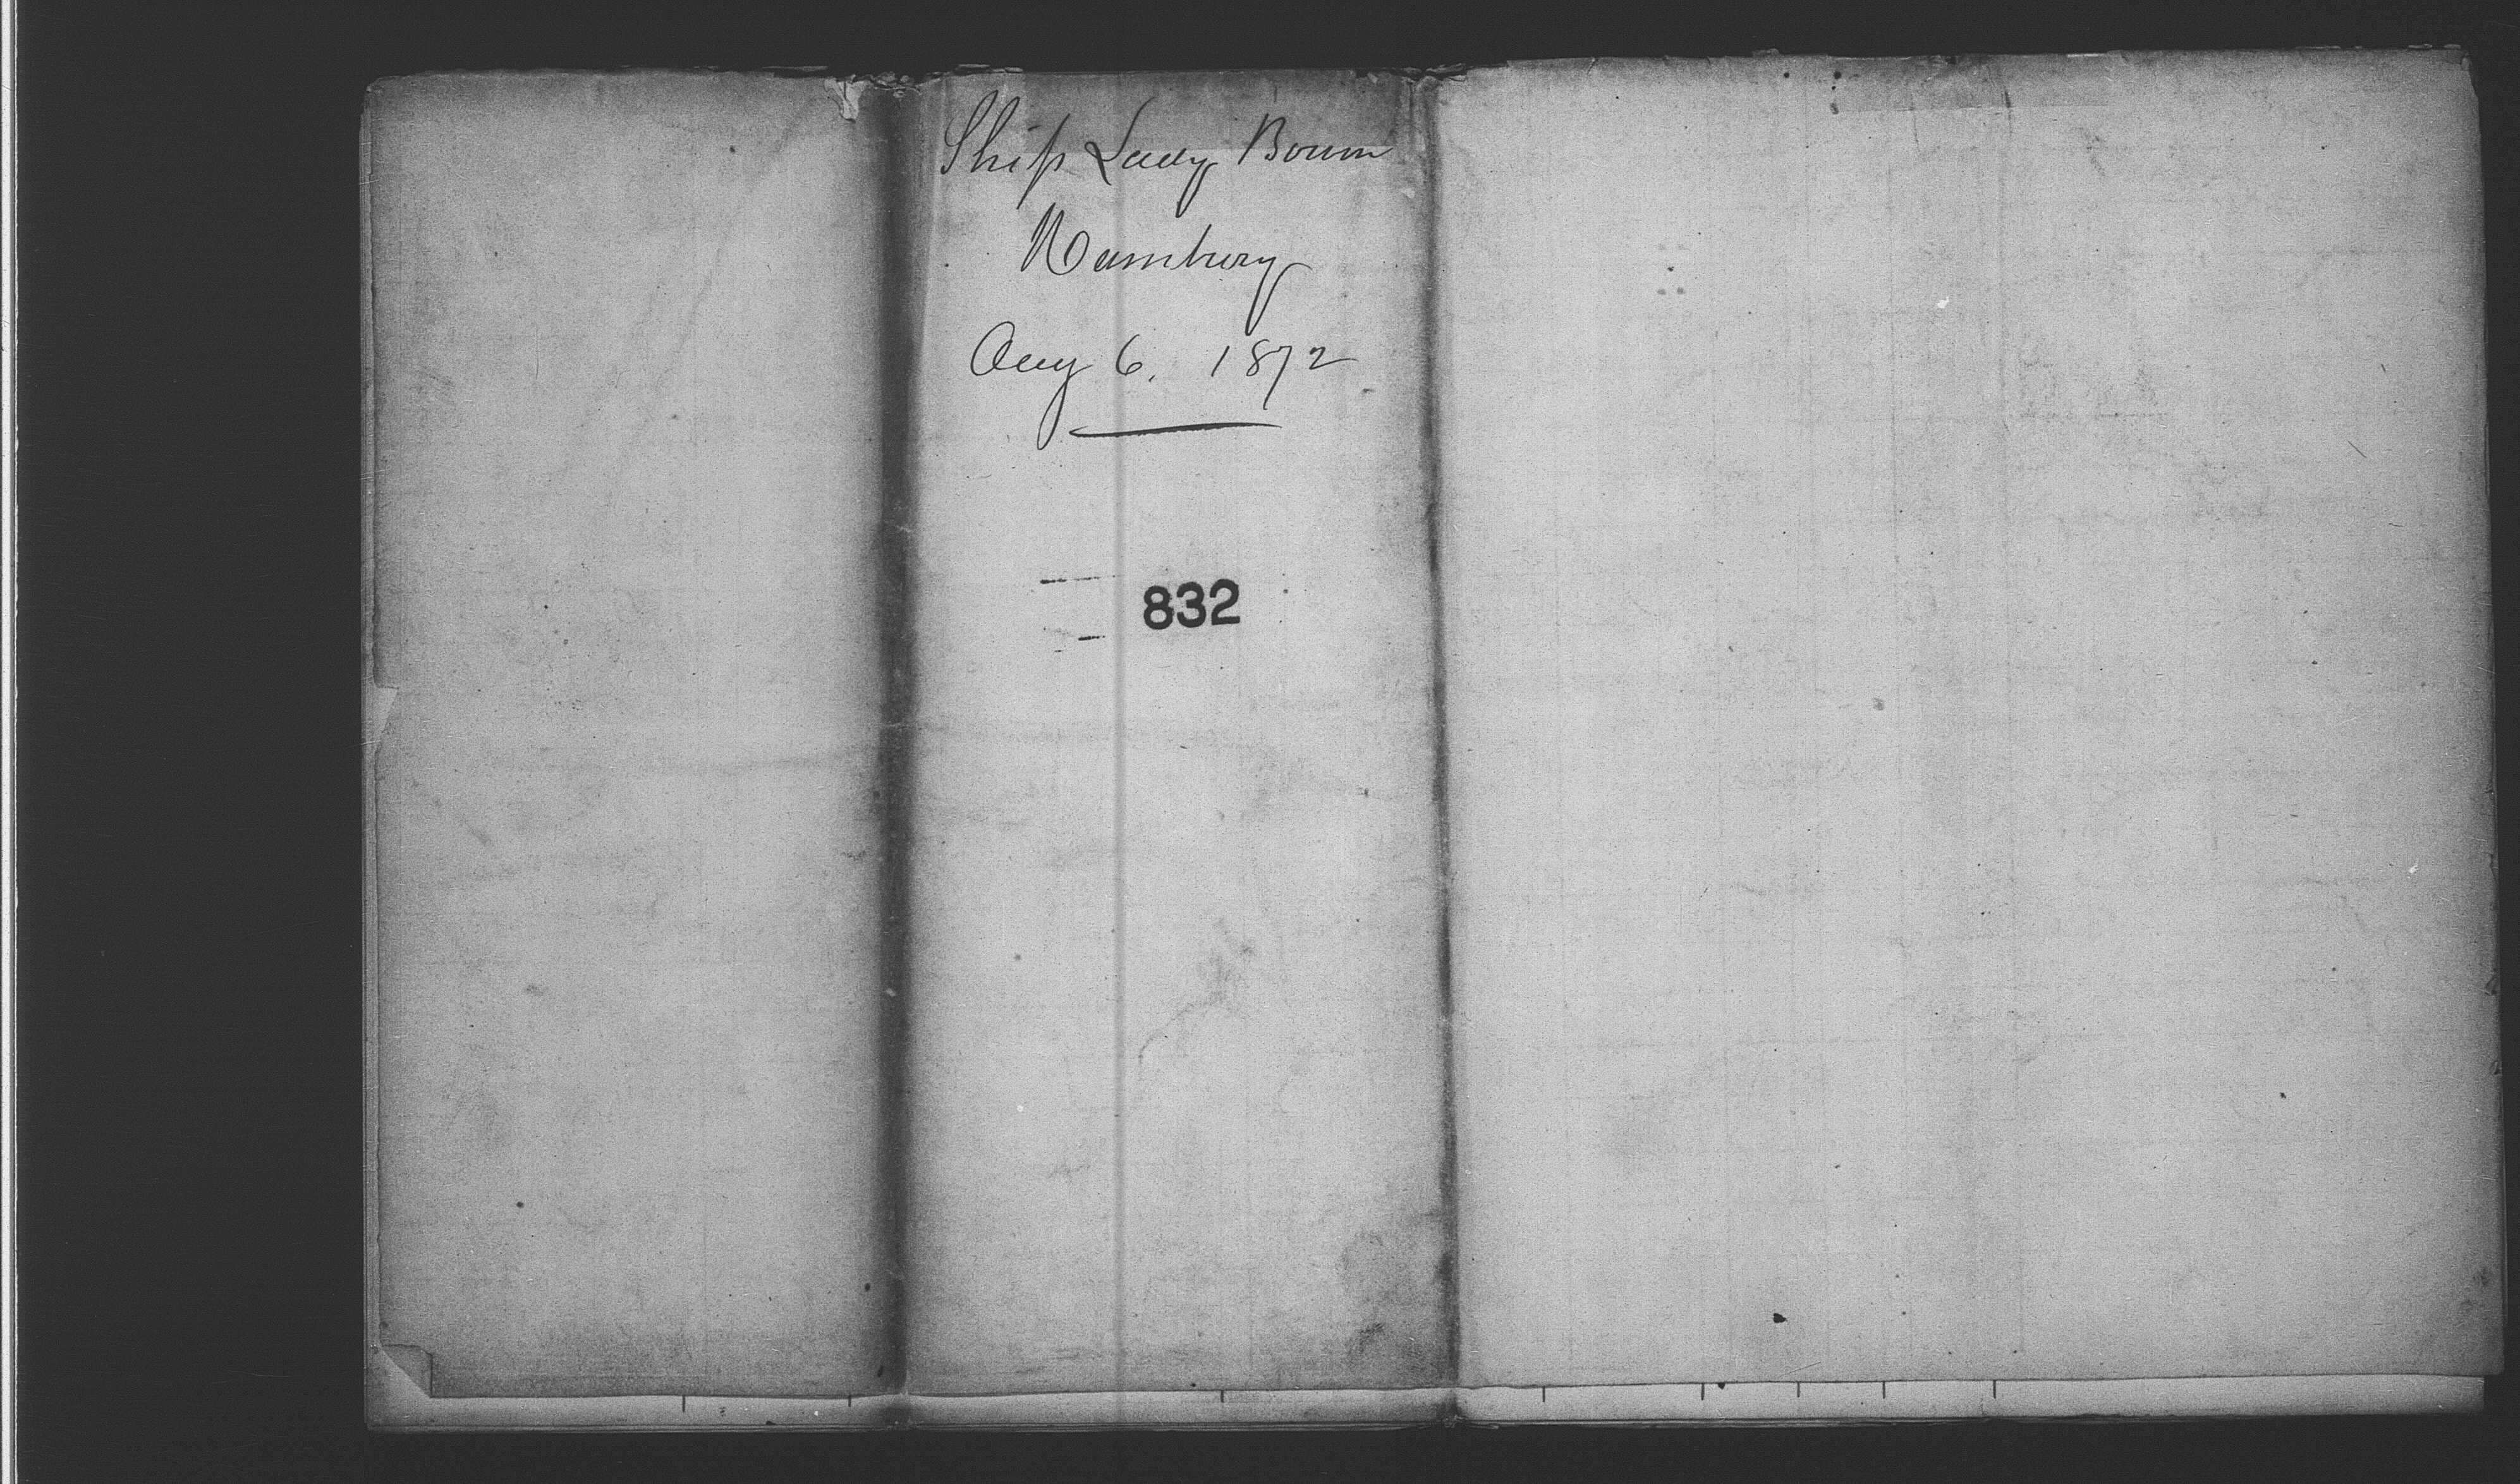 Ship Lady Bowen
Hamburg
Aug 6. 1872
832